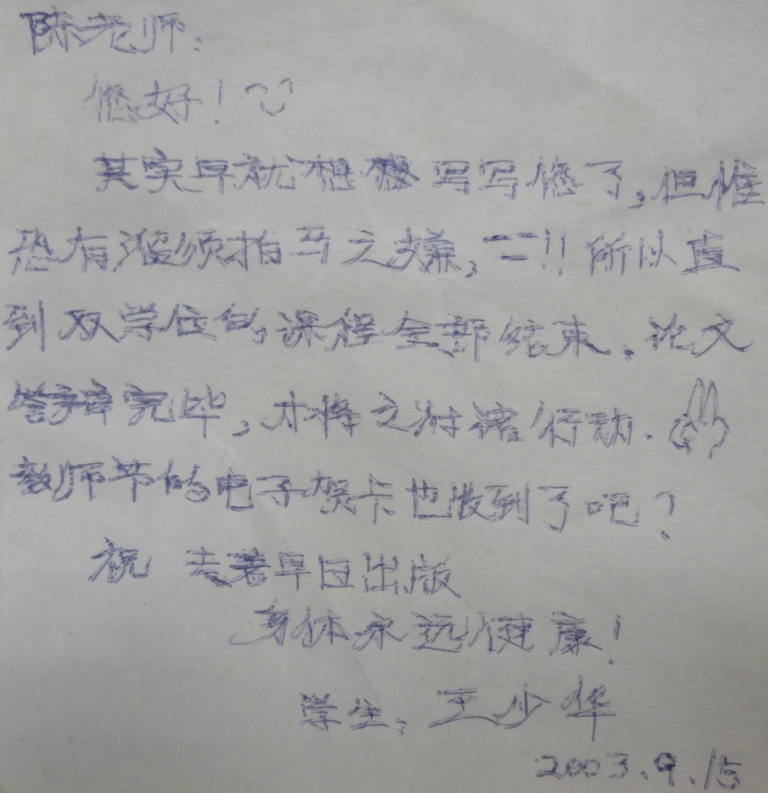 陈老师:
您好!
其实早就想想写写您了,但惟
恐有溜须拍马之嫌,=_=!! 所以直
到双学位的课程全部结束,论文
答辩完毕,才将之付诸行动.
教师节的电子贺卡也收到了吧?
祝 大著早日出版
身体永远健康!
学生:王少华
2003.9.15